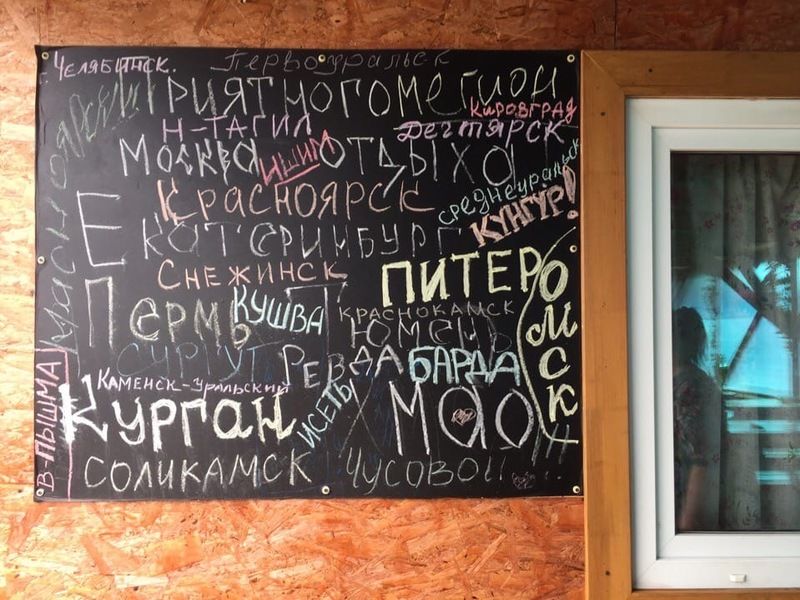 Челябинск.
Первоуральск
Приятного
Кировград
Н-ТАГИЛ
Дегтярск
Москва
Ишим
отдыха
Красноярск
среднеуральск
КУНГУР!
Екатеринбург
Снежинск
ПИТЕР
ОМСК
Пермь
КУШВА
КРАСНОКАМСК
Тюмень
СУРГУТ
РЕВДА
БАРДА
КАМЕНСК-УРАЛЬСКИЙ
Курган
ИСЕТЬ
ХМАО
В-ПЫШМА
СОЛИКАМСК
Чусовой